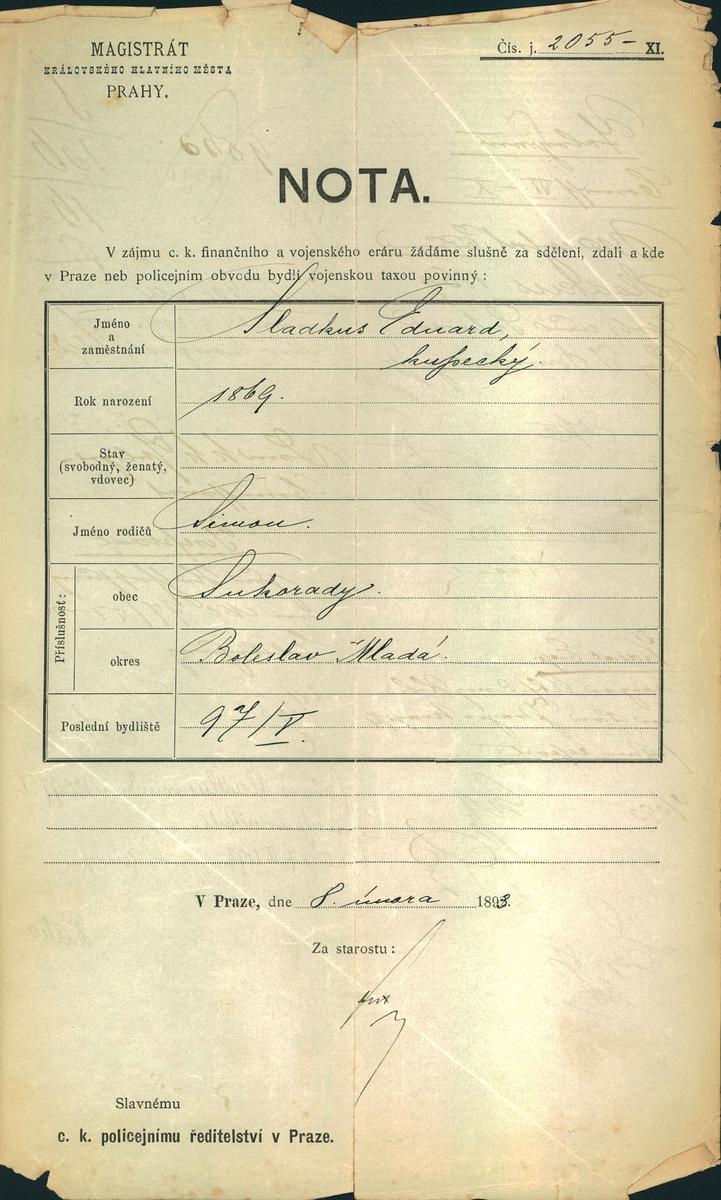 MAGISTRÁT
KRÁLOVSKÉHO HLAVNÍHO MĚSTA
PRAHY.
Čís. j. 2055 - XI.
NOTA.
V zájmu c. k. finančního a vojenského eráru žádáme slušně za sdělení, zdali a kde
v Praze neb policejním obvodu bydlí vojenskou taxou povinný :
Jméno
a
zaměstnání
Sladkus Eduard,
kupecký.
Rok narození
1869.
Stav
(svobodný, ženatý,
vdovec)
Jméno rodičů
Simon.
Příslušnost :
obec
Sukorady.
okres
Boleslav Mladá.
Poslední bydliště
97/V.
V Praze, dne 8. února 1893.
Za starostu :
Slavnému
c. k. policejnímu ředitelství v Praze.